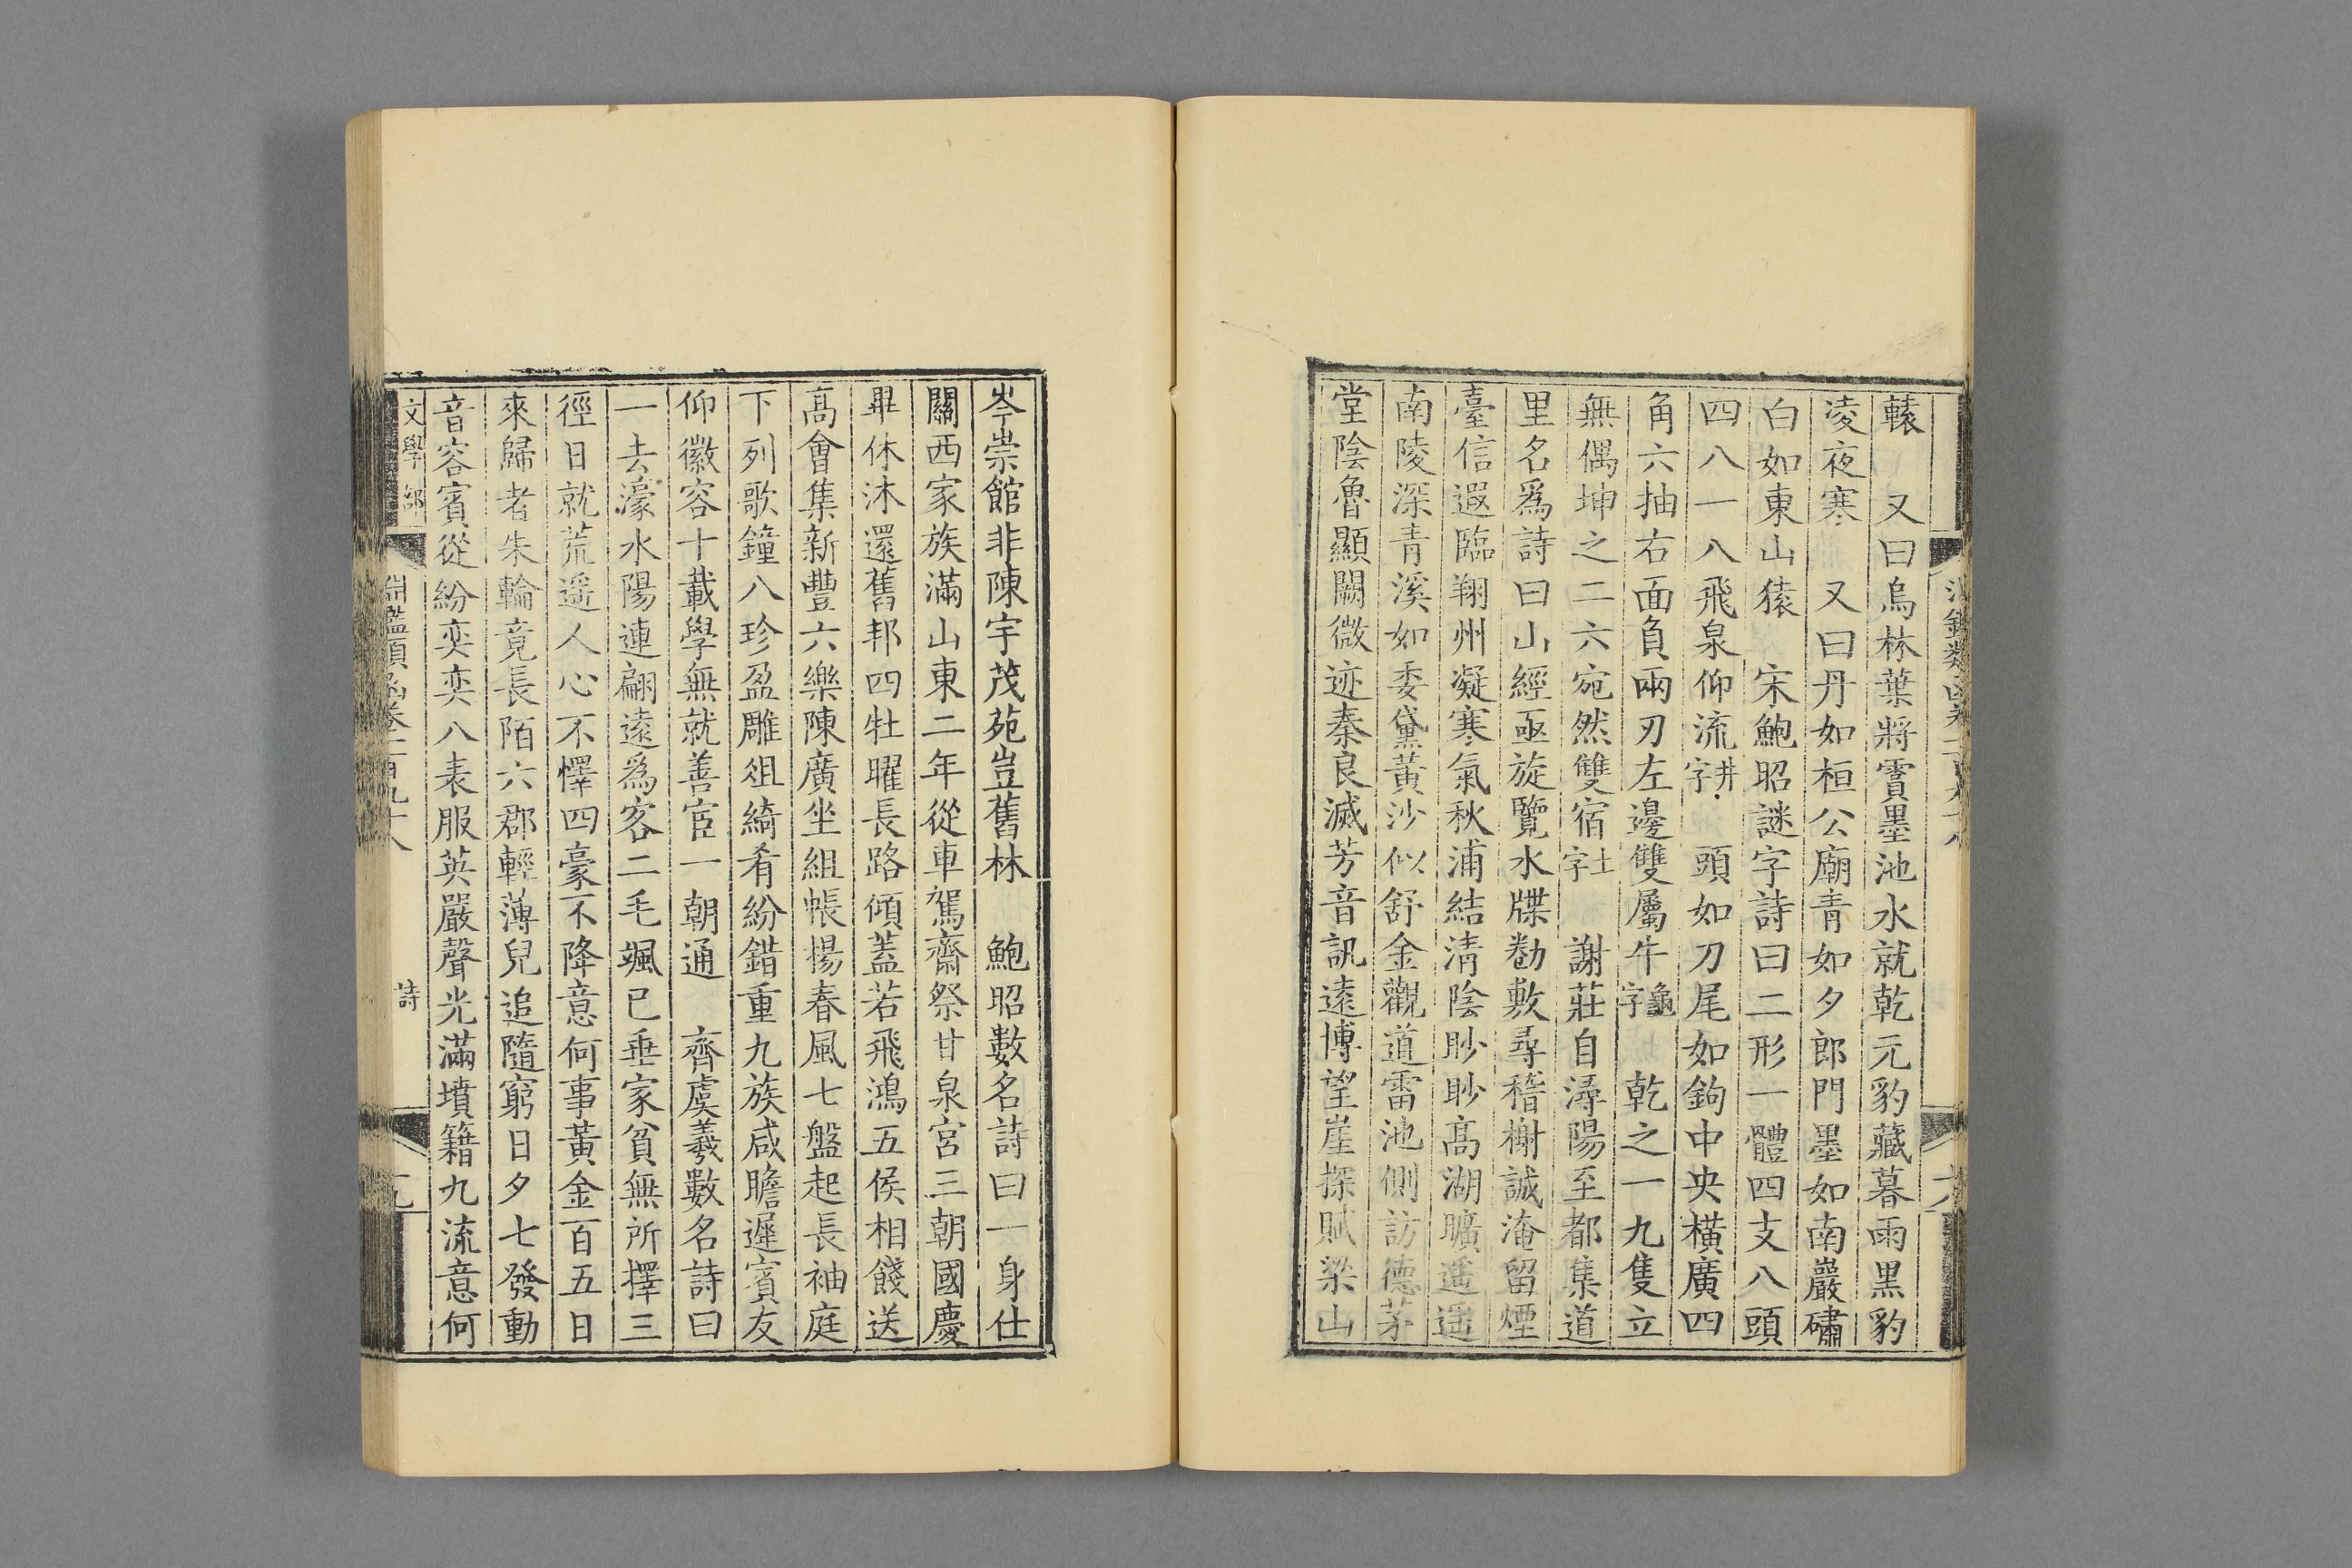 轅　又曰烏林葉將霣墨池水就乾元豹藏暮雨黑豹
凌夜寒　又曰丹如桓公廟青如夕郎門墨如南巖礵
白如東山猿　宋鮑昭謎字詩曰二形一體四支八頭
四八一八飛泉仰流井字　頭如刀尾如鉤中央橫廣四
角六抽右面負兩刃左邊雙屬牛龜字　乾之一九隻立
無偶坤之二六宛然雙宿土字　謝莊自潯陽至都集道
里名爲詩曰山經亟旋覽水牒勌敷尋稽榭誠淹留煙
臺信遐臨翔州凝寒氣秋浦結清陰眇眇高湖曠遥遥
南陵深青溪如委黛黃沙似舒金觀道雷池側訪德茅
堂陰魯顯闕微迹秦良滅芳音訊遠博望崖採賦梁山
岑崇館非陳宇茂苑豈舊林　鮑昭數名詩曰一身仕
關西家族滿山東二年從車駕齋祭甘泉宮三朝國慶
畢休沐還舊邦四牡曜長路傾蓋若飛鴻五侯相餞送
高會集新豐六樂陳廣坐組帳揚春風七盤起長袖庭
下列歌鐘八珍盈雕俎綺肴紛錯重九族咸瞻遲賓友
仰徽容十載學無就善宦一朝通　齊虞羲數名詩曰
一去濠水陽連翩遠爲客二毛颯已垂家貧無所擇三
徑日就荒遥人心不懌四豪不降意何事黃金百五日
來歸者朱輪竟長陌六郡輕薄兒追隨窮日夕七發動
音容賓從紛奕奕八表服英嚴聲光滿墳籍九流意何
文學部　淵鑑類函卷二百九十八　詩